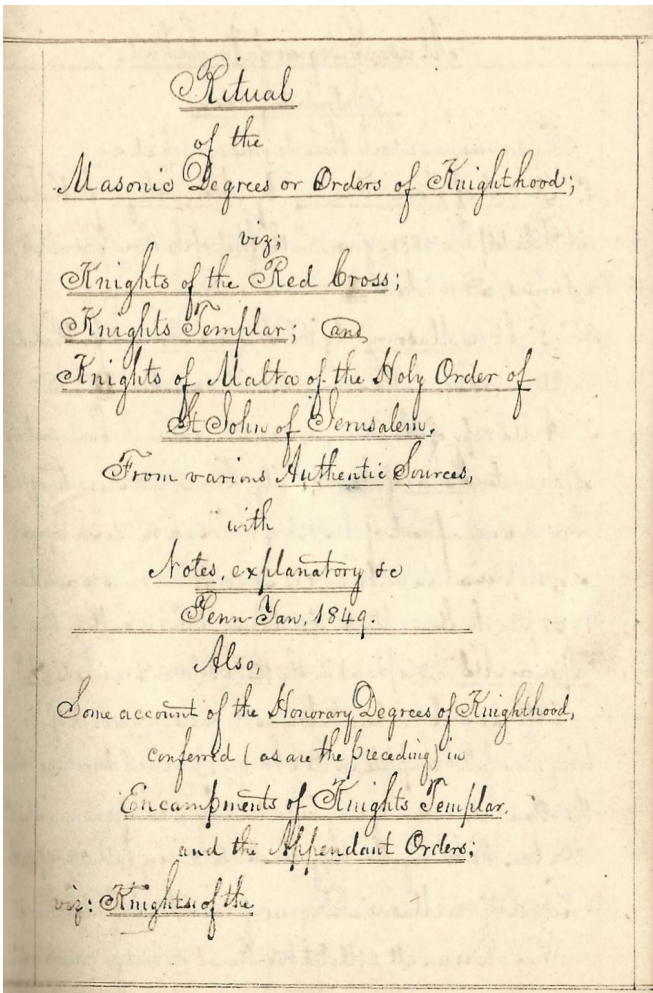 Ritual
of the
Masonic Degrees or Orders of Knighthood;
viz;
Knights of the Red Cross;
Knights Templar; and
Knights of Malta of the Holy Order of
St John of Jerusalem.
From various Authentic Sources,
with
Notes, explanatory &c
Penn-Yan, 1849.
Also,
Some account of the Honorary Degrees of Knighthood,
conferred (as are the preceding) in
Encampments of Knights Templar,
and the Appendant Orders;
viz: Knights of the